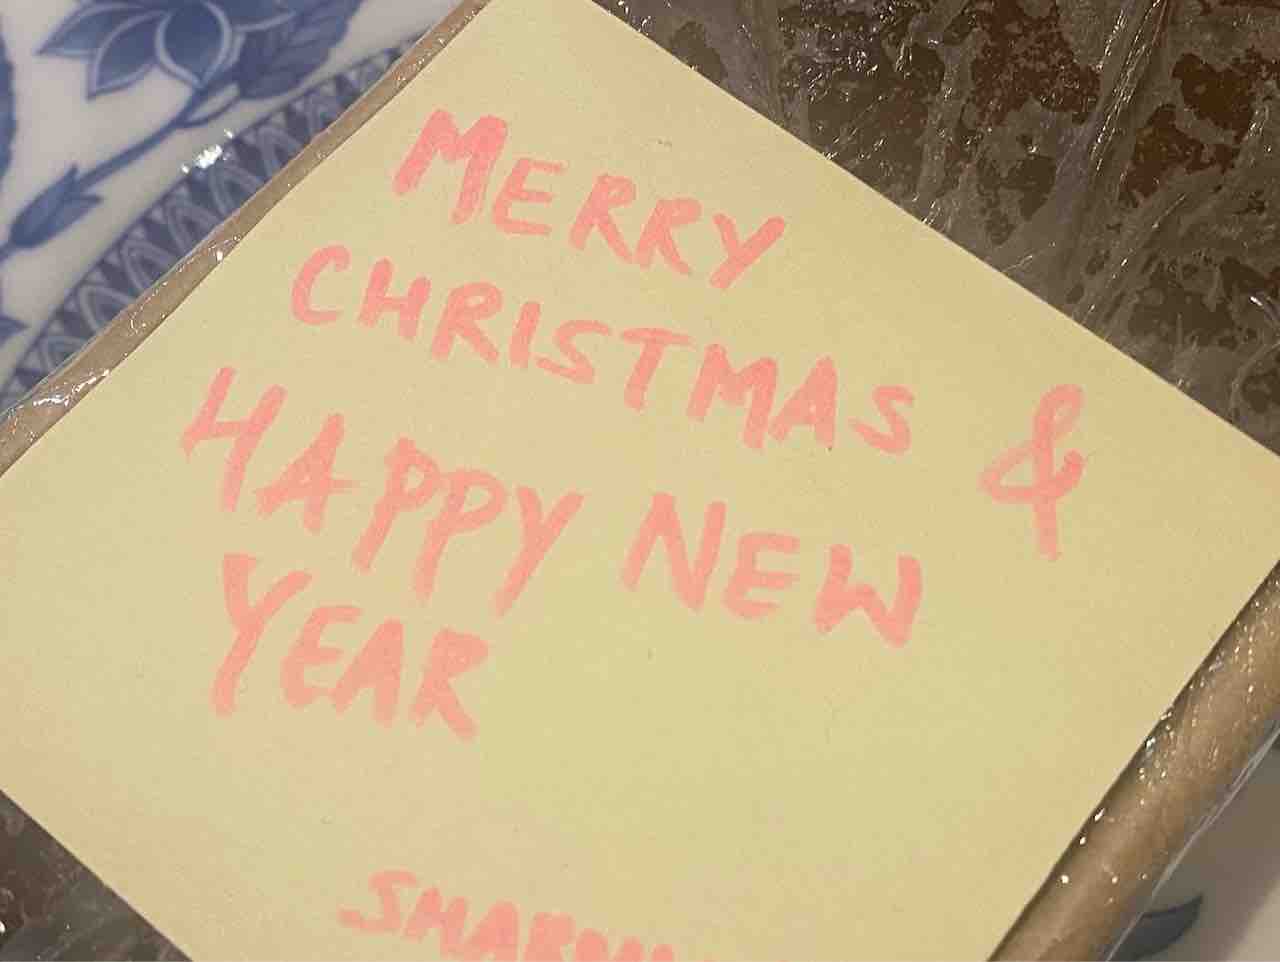 MERRY
CHRISTMAS &
HAPPY NEW
YEAR